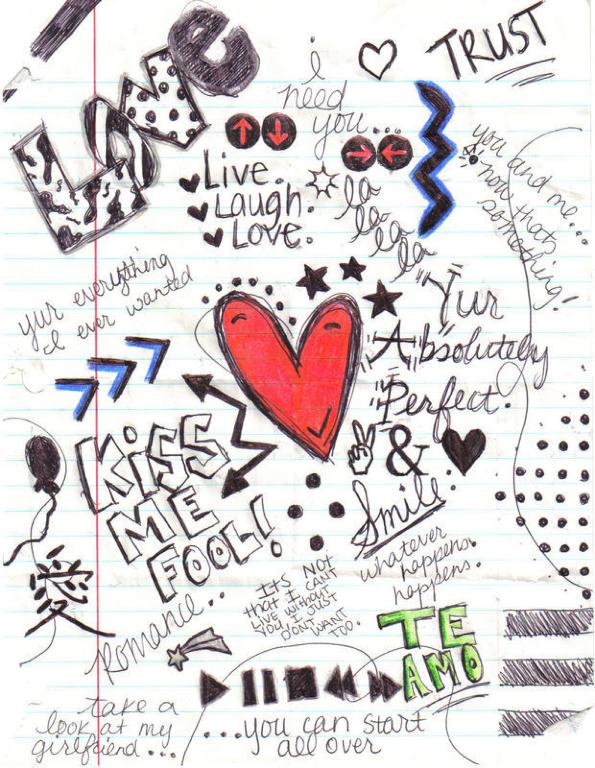 LOVE
i
need
you...
TRUST
Live.
Laugh.
Love.
la
la
la
la
you and me...
now thats
something!
yur everything
I ever wanted
Yur
Absolutely
Perfect.
&
Smile.
KiSS
ME
FOOL!
愛
whatever
happens
happens.
ITS NOT
that I CAN'T
LIVE WITHOUT
YOU, I JUST
DON'T WANT
TOO.
Romance..
TE
AMO
take a
look at my
girlfriend...
...you can start
all over